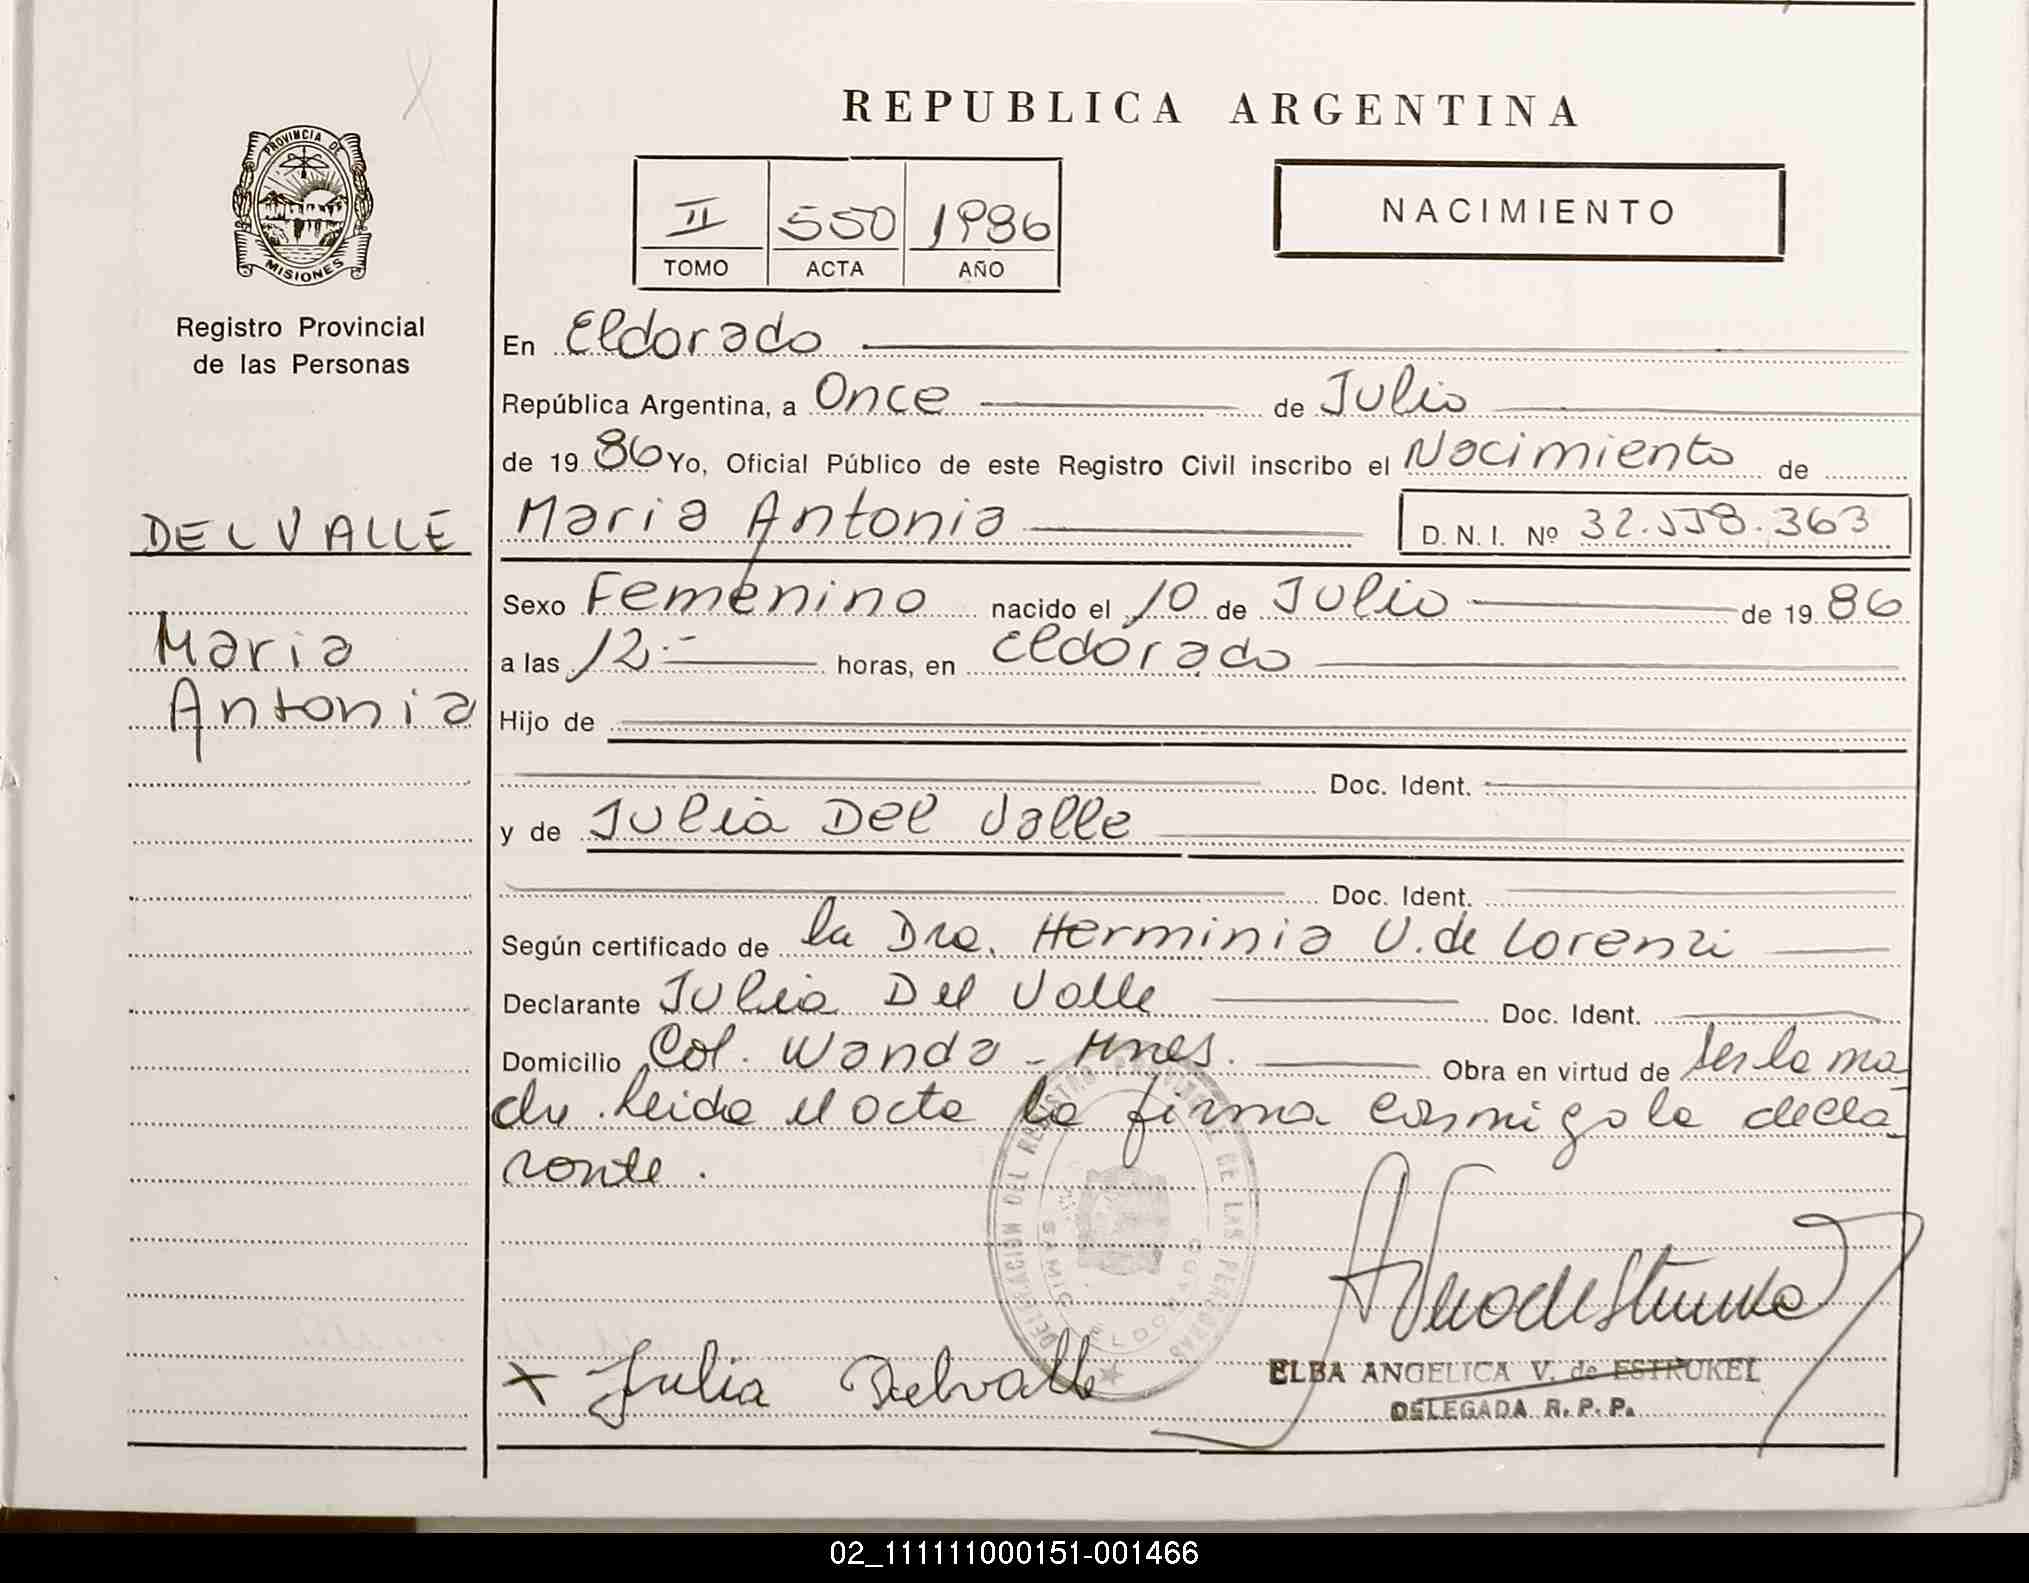 REPUBLICA ARGENTINA
PROVINCIA DE
MISIONES
Registro Provincial
de las Personas
II 550 1986
TOMO ACTA AÑO
NACIMIENTO
En Eldorado
República Argentina, a Once de Julio
de 1986 Yo, Oficial Público de este Registro Civil inscribo el Nacimiento de
DELVALLE
Maria Antonia D. N. I. Nº 32.558.363
Sexo Femenino nacido el 10 de Julio de 1986
Maria
a las 12.- horas, en Eldorado
Antonia
Hijo de
Doc. Ident.
y de Julia Del Valle
Doc. Ident.
Según certificado de la Dra. Herminia V. de Lorenzi
Declarante Julia Del Valle Doc. Ident.
Domicilio Col. Wanda - Mnes. Obra en virtud de ser la ma-
dre. Leida el acta la firma conmigo la decla-
rante.
DELEGACION DEL REGISTRO PROVINCIAL DE LAS PERSONAS
ELDORADO
x Julia Delvalle
ELBA ANGELICA V. de ESTRUKEL
DELEGADA R. P. P.
02_111111000151-001466